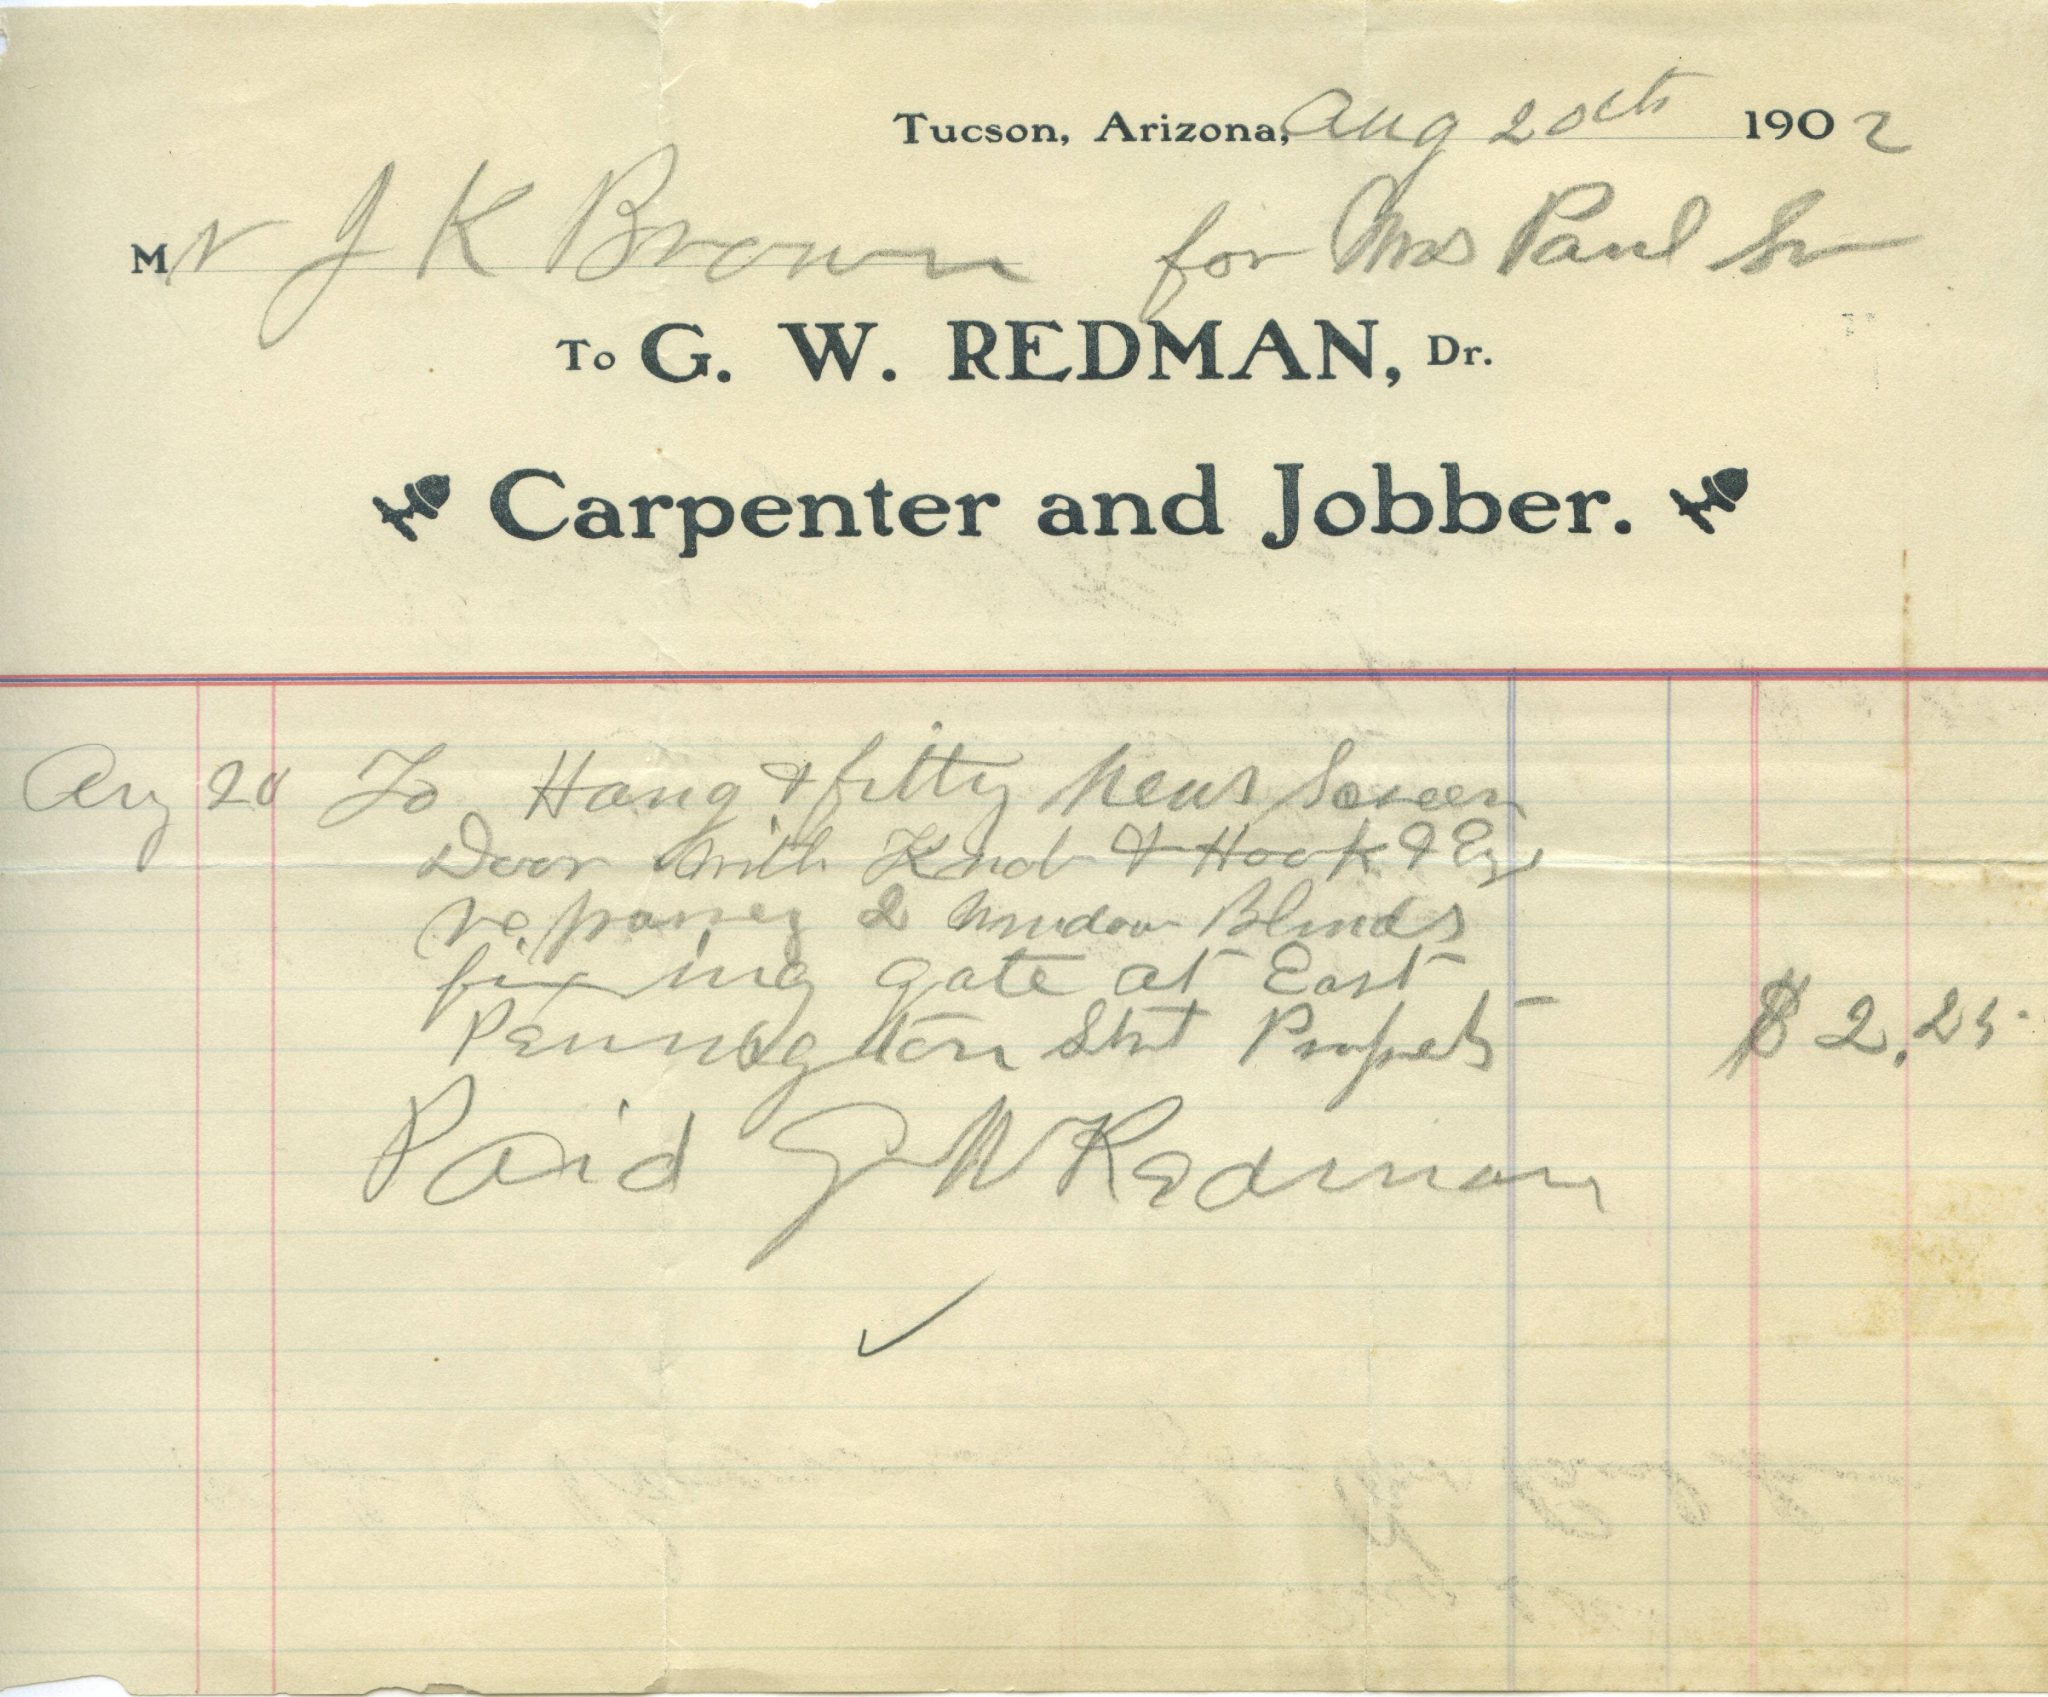 Tucson, Arizona, Aug 20th 1902
Mr J K Brown for Mrs Paul Sr
To G. W. REDMAN, Dr.
Carpenter and Jobber.
Aug 20 To Hang & fitty New Screen
Door with Knob & Hook & Eye
2 Window Blinds
fixing gate at East
Pennington Strt $ 2.25
Paid G W Redman